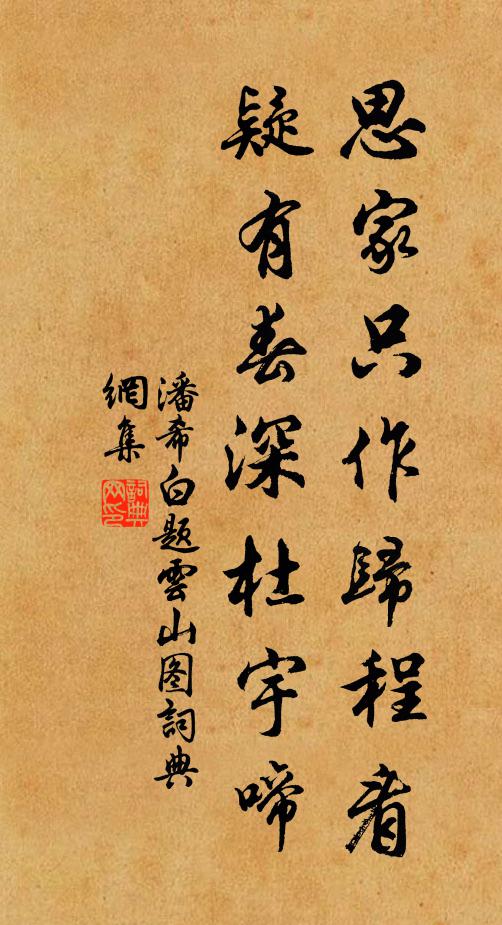 思家只作歸程看
疑有春深杜宇啼
潘希白題雲山图詞典
網集
詞典
网印